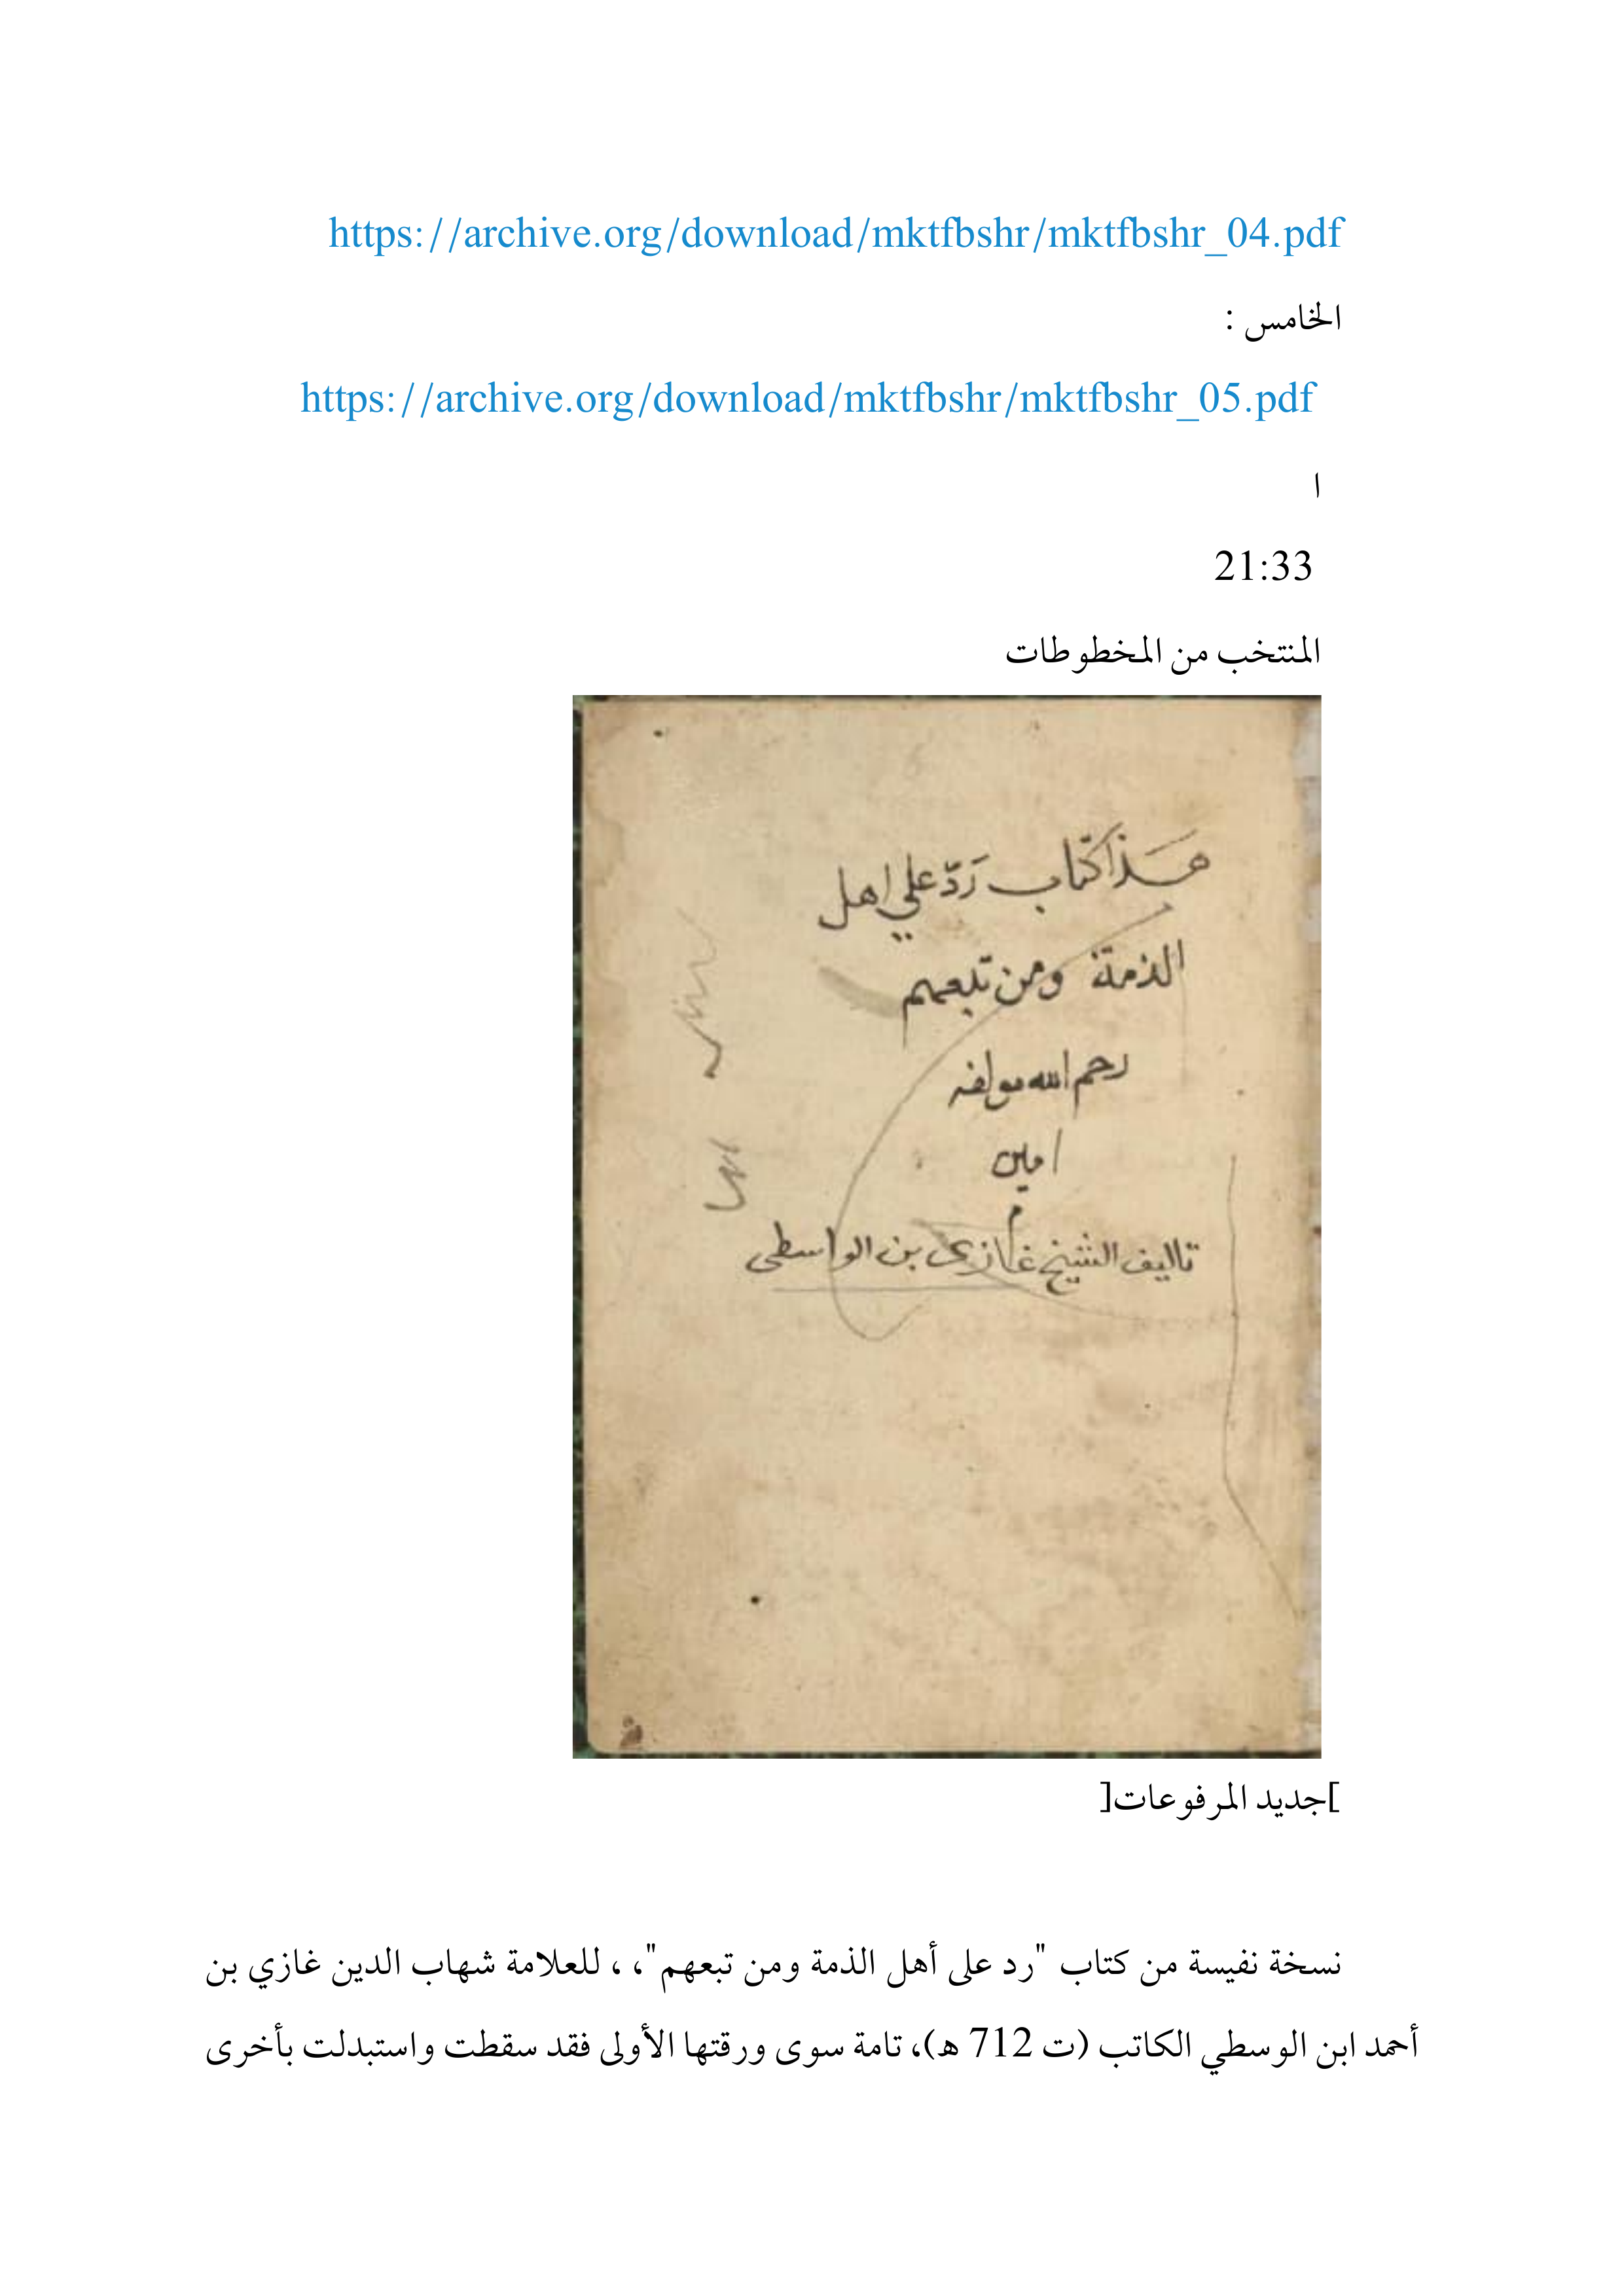 https://archive.org/download/mktfbshr/mktfbshr_04.pdf
الخامس :
https://archive.org/download/mktfbshr/mktfbshr_05.pdf
ا
21:33
المنتخب من المخطوطات
هذا كتاب ردّ علي اهل
الذمة ومن تبعهم
رحم الله مولفه
امين
تاليف الشيخ غازى بن الواسطى
]جديد المرفوعات[
نسخة نفيسة من كتاب "رد على أهل الذمة ومن تبعهم"، ، للعلامة شهاب الدين غازي بن
أحمد ابن الوسطي الكاتب (ت 712 ه)، تامة سوى ورقتها الأولى فقد سقطت واستبدلت بأخرى